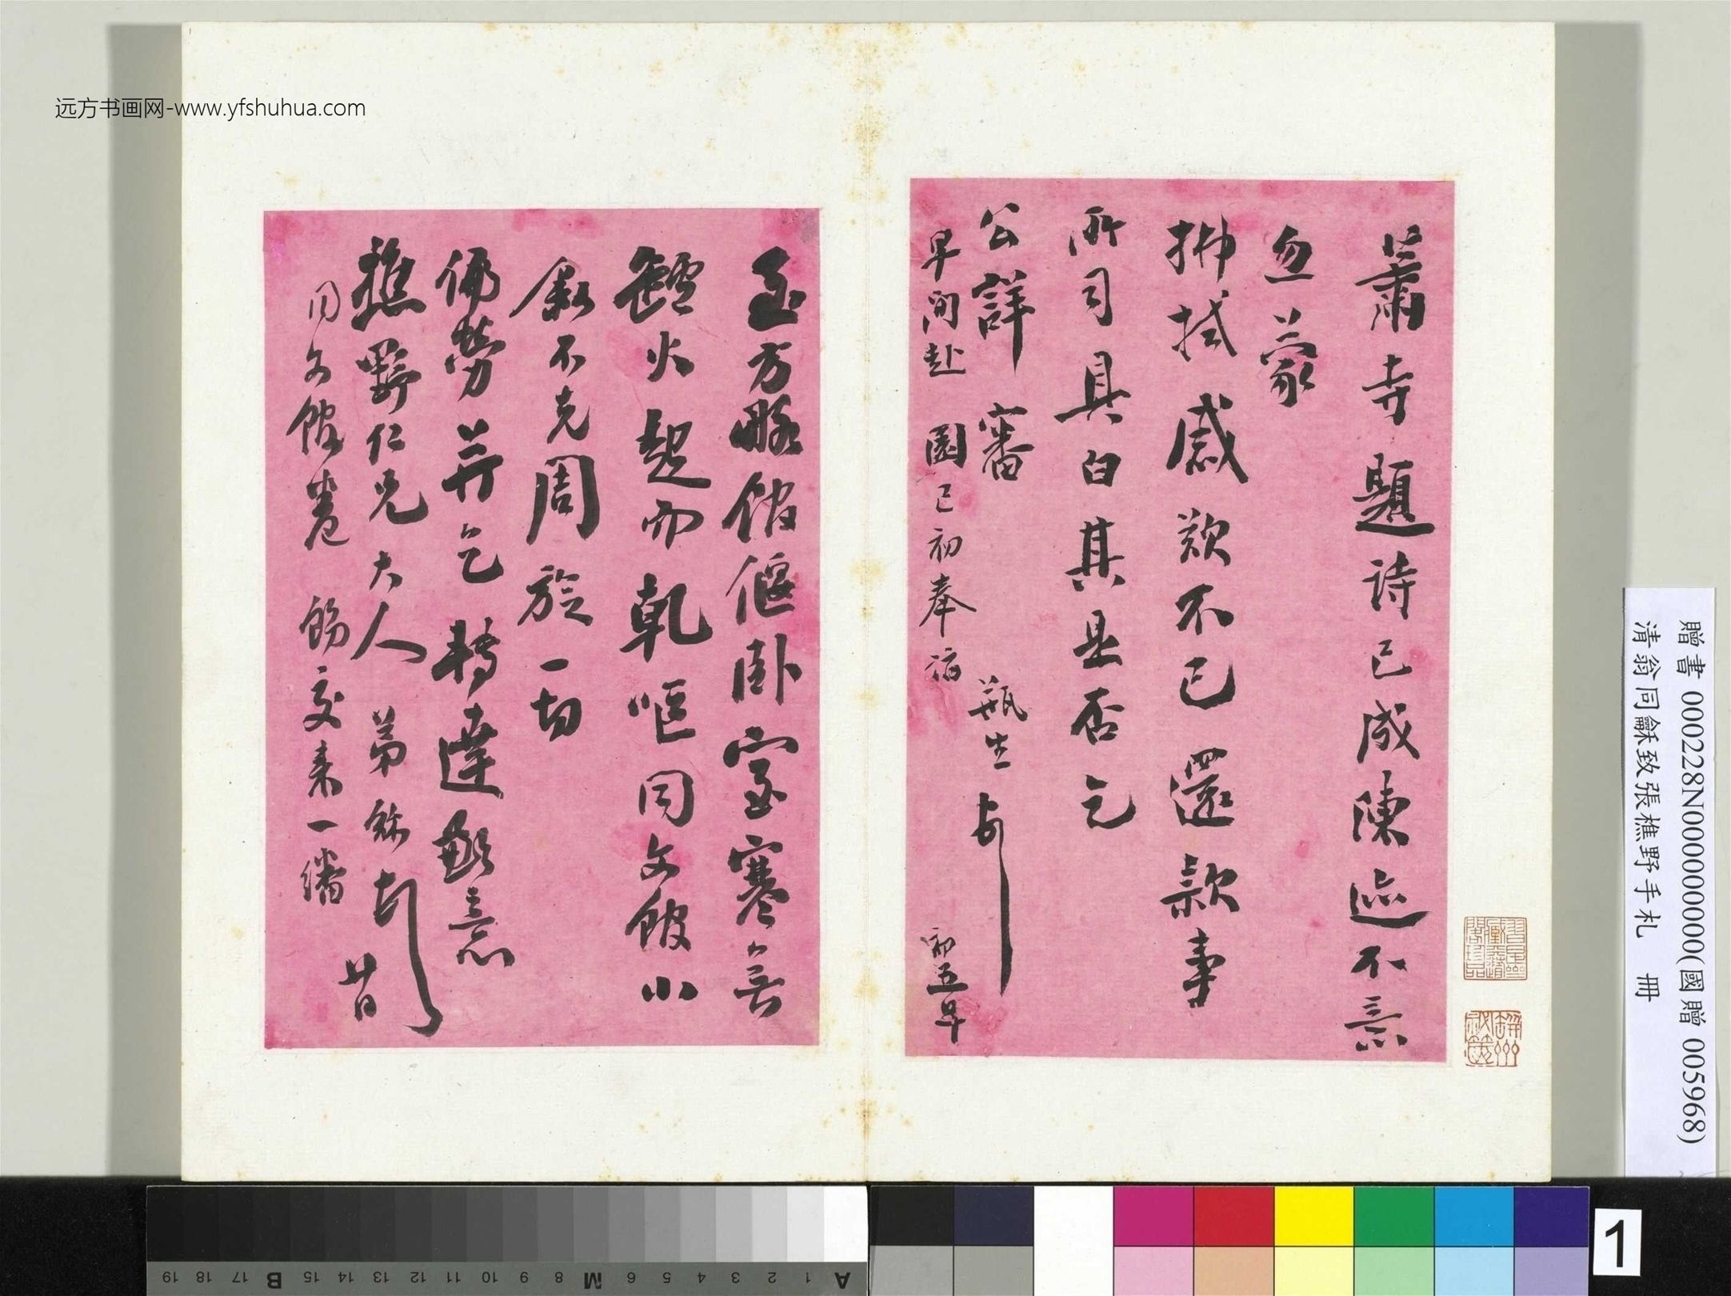 远方书画网-www.yfshuhua.com
蕭寺題詩已成陳迹不意
忽蒙
拂拭感歎不已還款事
所司具白其是否乞
公詳審 瓶生頓
早間赴 園巳初奉訪 初五早
至方略館偃卧室寒無
鑪火起而乾嘔同文館小
叙不克周旋一切
偏勞并乞轉達歉意
樵野仁兄大人 弟龢頓 廿日
同文館卷 飭交来一繙
贈書 000228N000000000(國贈 005968)
清翁同龢致張樵野手札 冊
A 1 2 3 4 5 6 M 8 9 10 11 12 13 14 15 B 17 18 19
1